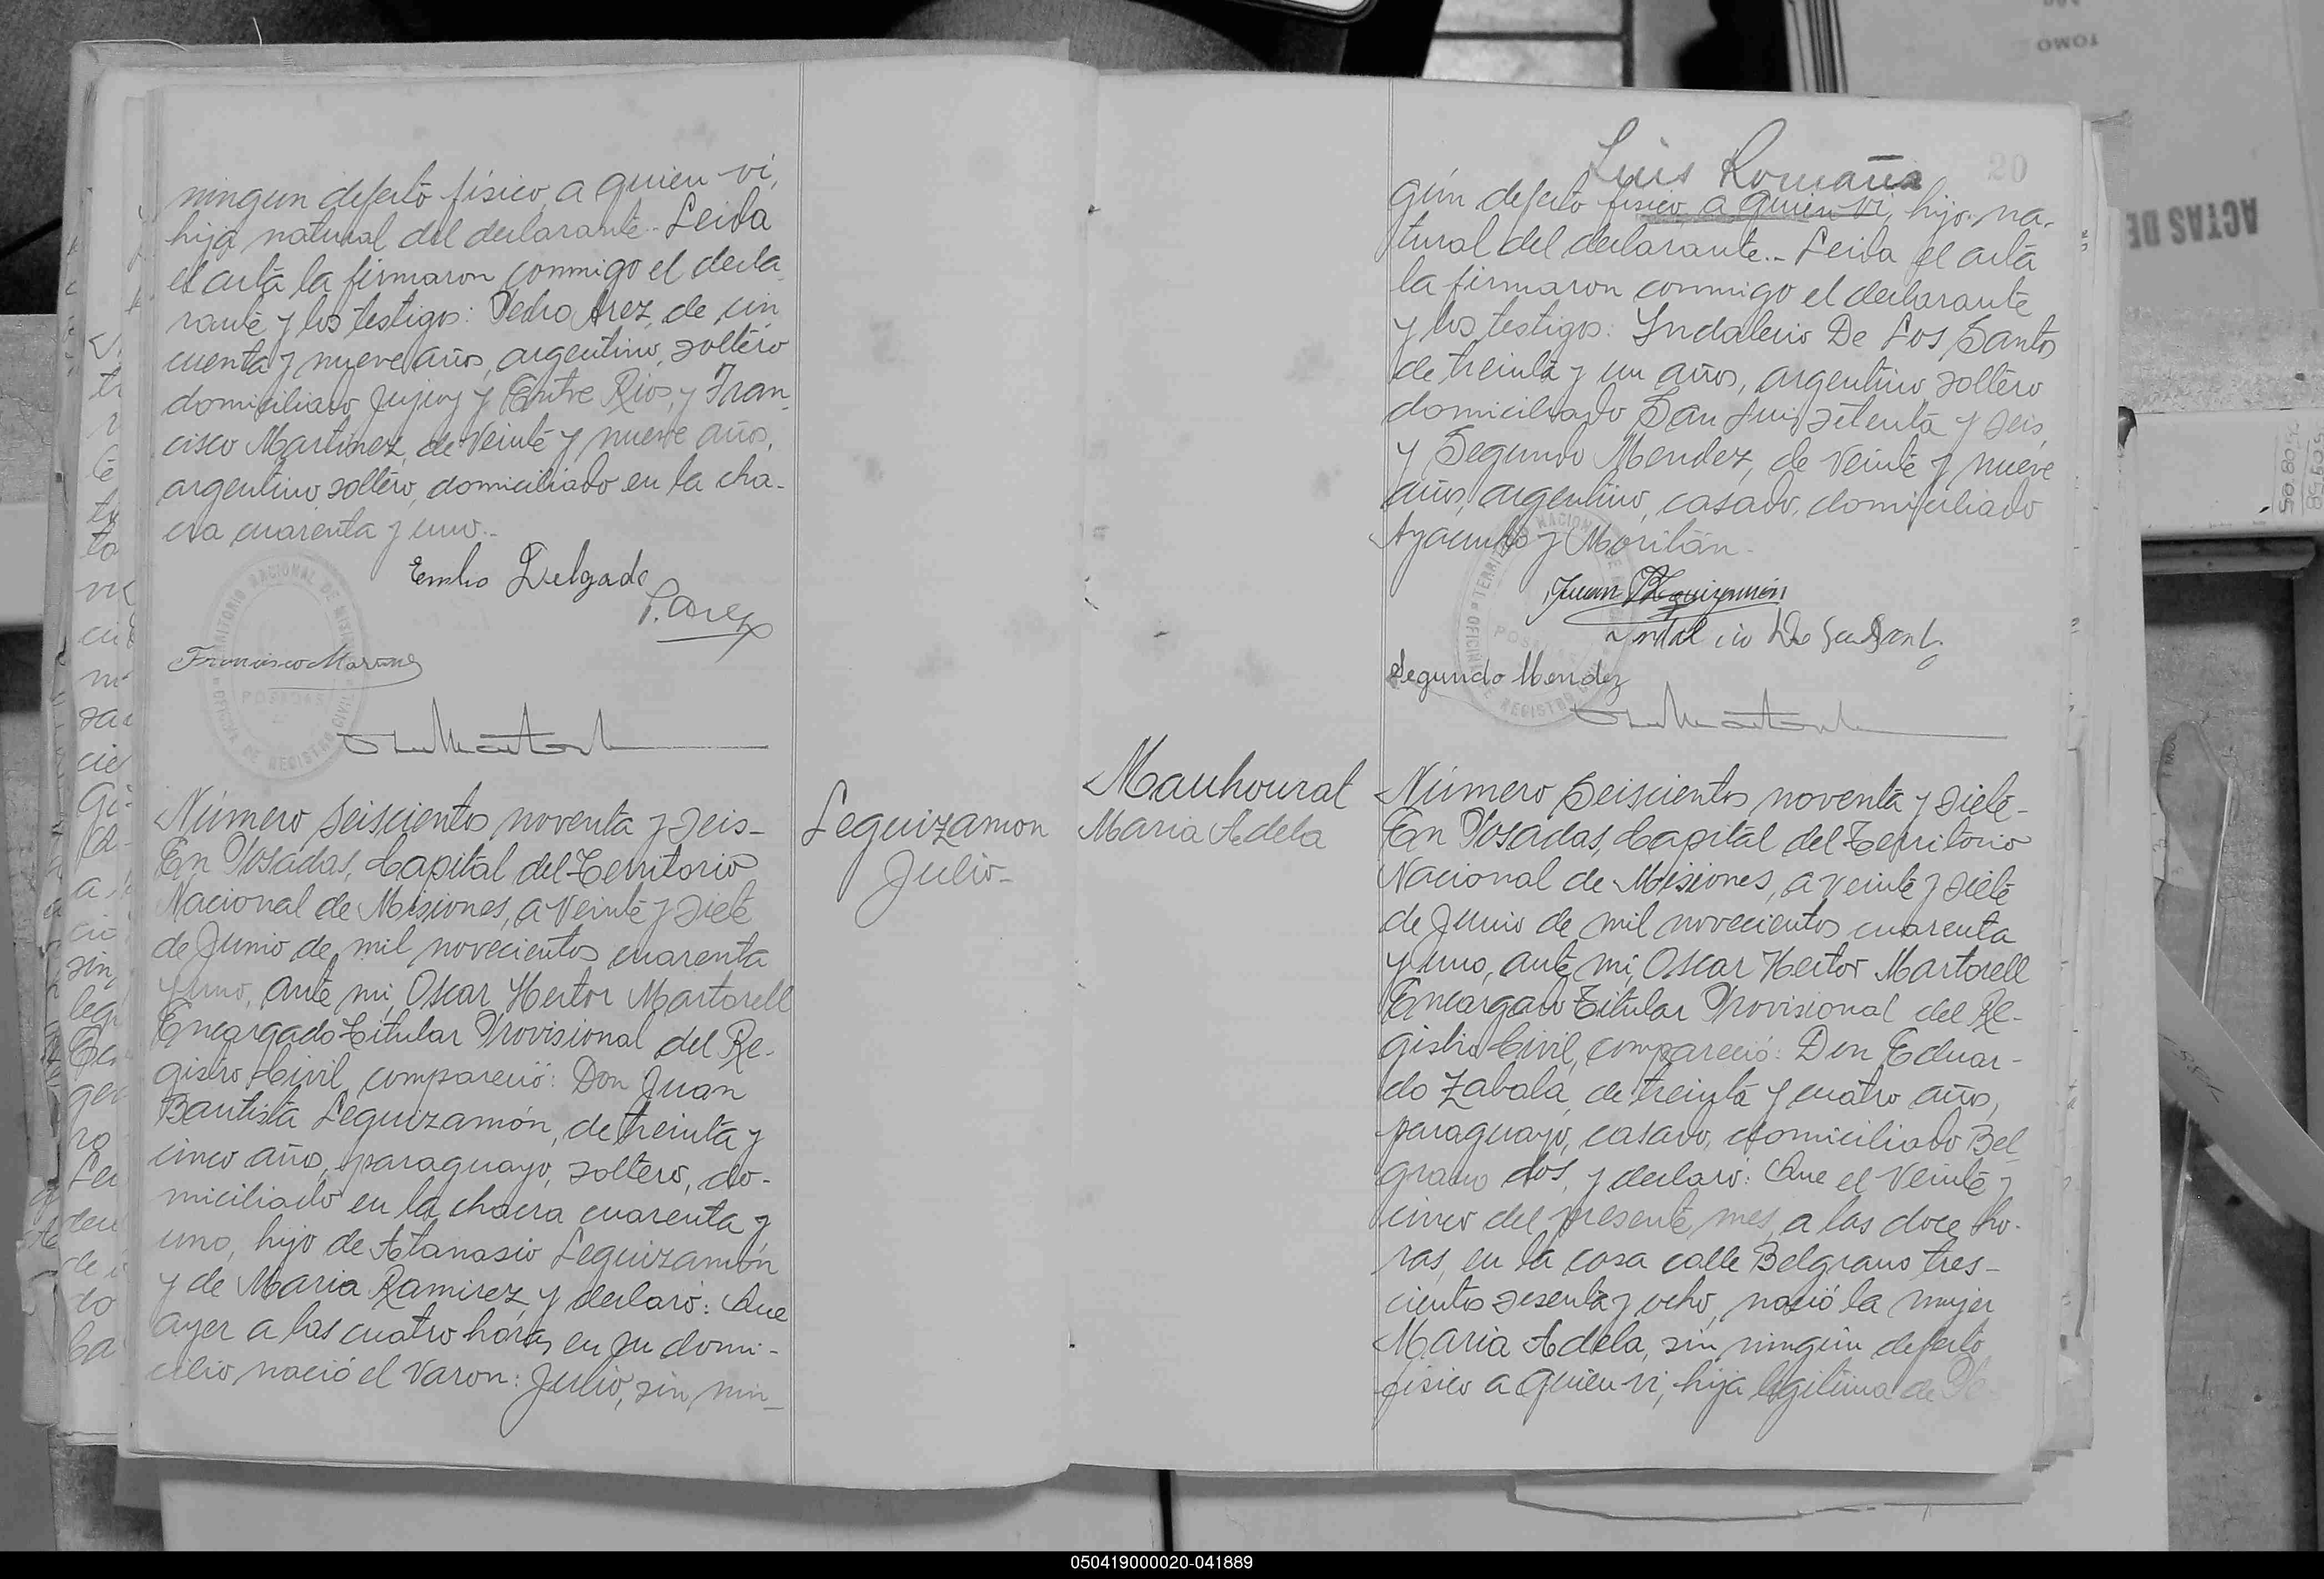 ningun defecto físico, a quien vi,
hija natural del declarante.- Leida
el acta la firmaron conmigo el decla
rante y los testigos: Pedro Arez, de cin
cuenta y nueve años, argentino, soltero
domiciliado Jujuy y Entre Rios, y Fran-
cisco Martinez, de veinte y nueve años,
argentino, soltero, domiciliado en la cha-
cra cuarenta y uno.-
Emilio Delgado
P. Arez
Número seiscientos noventa y seis-
En Posadas, Capital del Territorio
Nacional de Misiones, a veinte y siete
de Junio de mil novecientos cuarenta
y uno, ante mi, Oscar Hector Martorell
Encargado Titular Provisional del Re-
gistro Civil, compareció: Don Juan
Bautista Leguizamón, de treinta y
cinco años, paraguayo, soltero, do-
miciliado en la chacra cuarenta y
uno, hijo de Atanasio Leguizamón
y de Maria Ramirez, y declaró: Que
ayer a las cuatro horas, en su domi-
cilio nació el varon: Julio, sin nin-
Leguizamon
Julio-
Luis Romaña
20
gún defecto físico, a quien vi, hijo na-
tural del declarante.- Leida el acta
la firmaron conmigo el declarante
y los testigos: Indalecio De Los Santos
de treinta y un años, argentino, soltero
domiciliado San Luis setenta y seis,
y Segundo Mendez, de veinte y nueve
años, argentino, casado, domiciliado
Ayacucho y Moritán-
Juan B Leguizamón
Segundo Mendez
Mauhourat
Maria Adela
Número seiscientos noventa y siete-
En Posadas, Capital del Territorio
Nacional de Misiones, a veinte y siete
de Junio de mil novecientos cuarenta
y uno, ante mi, Oscar Hector Martorell
Encargado Titular Provisional del Re-
gistro Civil, compareció: Don Eduar-
do Zabala, de treinta y cuatro años,
paraguayo, casado, domiciliado Bel
grano dos, y declaro: Que el veinte y
cinco del presente mes, a las doce ho-
ras, en la casa calle Belgrano tres-
cientos sesenta y ocho, nació la mujer
Maria Adela, sin ningún defecto
físico a quien vi, hija legitima de
TOMO
ACTAS DE
050419000020-041889